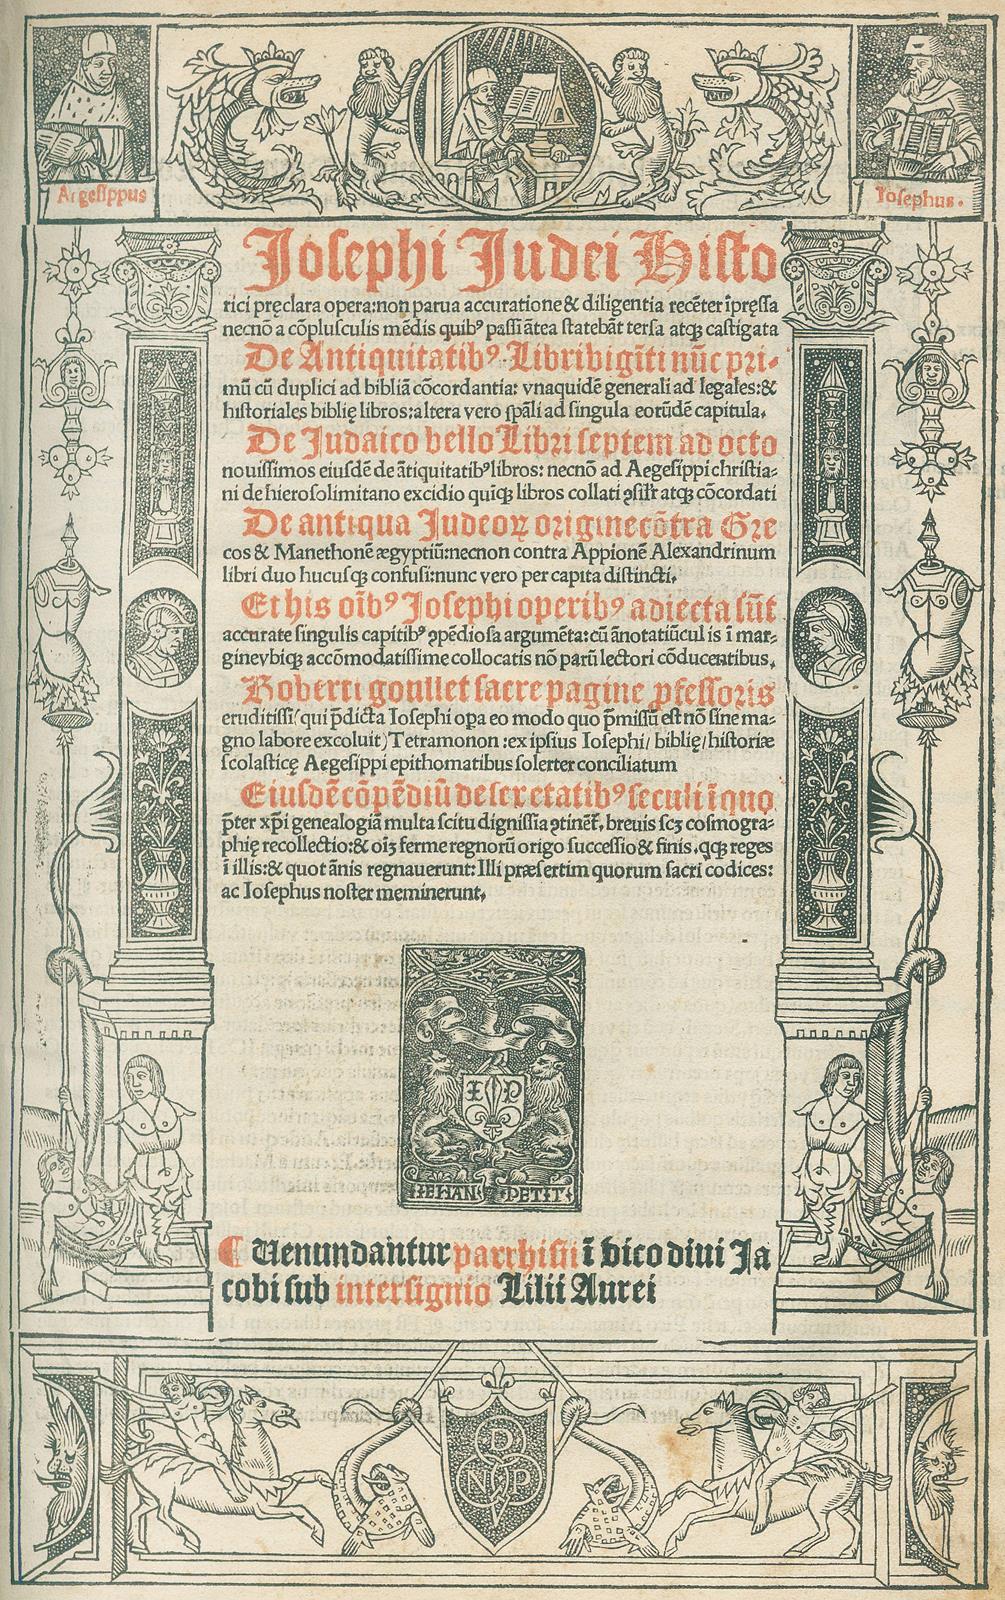 Argesippus
Iosephus.
Josephi Judei Histo
rici pręclara opera:non parua accuratione & diligentia recēter īpręssa
necnō a cōplusculis mēdis quibꝰ passī ātea statebāt tersa atqꝫ castigata
De Antiquitatibꝰ. Libri bigīti nūc pri-
mū cū duplici ad bibliā cōcordantia: vnaquidē generali ad legales:&
historiales biblię libros:altera vero spāli ad singula eorūdē capitula.
De Judaico bello Libri septem ad octo
nouissimos eiusdē de ātiquitatibꝰ libros: necnō ad Aegesippi christia-
ni de hierosolimitano excidio quīqꝫ libros collati ꝯsilr̄ atqꝫ cōcordati
De antiqua Judeoꝝ origine cōtra Gre
cos & Manethonē ægyptiū:necnon contra Appionē Alexandrinum
libri duo hucusqꝫ confusi:nunc vero per capita distincti.
Et his oībꝰ Josephi operibꝰ adiecta sūt
accurate singulis capitibꝰ ꝯpēdiosa argumēta:cū ānotatiūcul is ī mar-
gine vbiqꝫ accōmodatissime collocatis nō parū lectori cōducentibus.
Roberti goullet sacre pagine ꝓfessoris
eruditissi(qui p̄dicta Iosephi oꝑa eo modo quo p̄missū est nō sine ma-
gno labore excoluit)Tetramonon:ex ipsius Iosephi/ biblię/ historiæ
scolasticę Aegesippi epithomatibus solerter conciliatum
Eiusdē cōpēdiū de sex etatibꝰ seculi ī quo
p̄ter xp̄i genealogiā multa scitu dignissīa ꝯtinēt. breuis scꝫ cosmogra-
phię recollectio:& oīꝫ ferme regnorū origo successio & finis. qqꝫ reges
ī illis:& quot ānis regnauerunt: Illi præsertim quorum sacri codices:
ac Iosephus noster meminerunt.
I P
IEHAN PETIT
¶ Uenundantur parrhisii ī vico diui Ja
cobi sub intersignio Lilii Aurei
D
N P